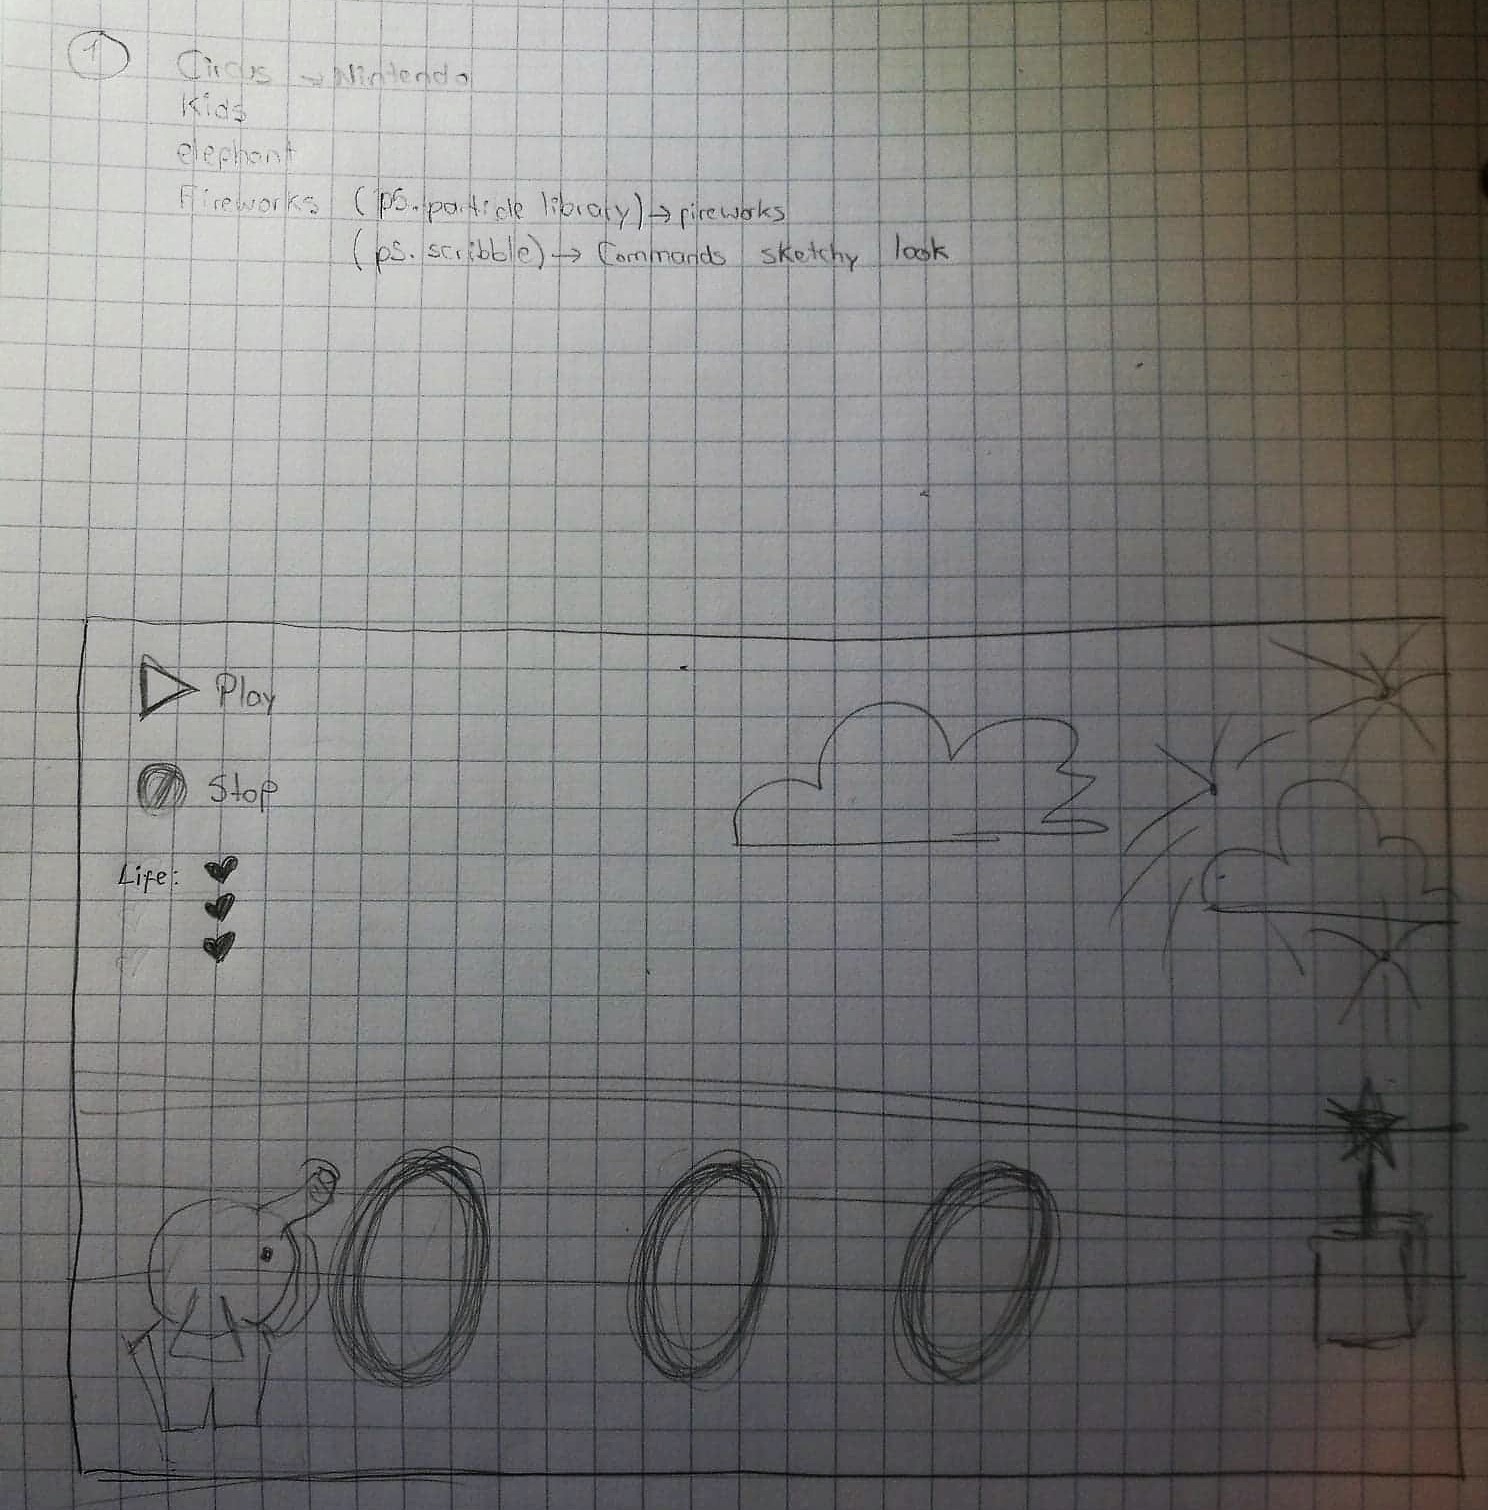 1
Circus → Nintendo
Kids
elephant
Fireworks (p5.particle library) → fireworks
(p5.scribble) → Commands sketchy look
Play
Stop
Life: